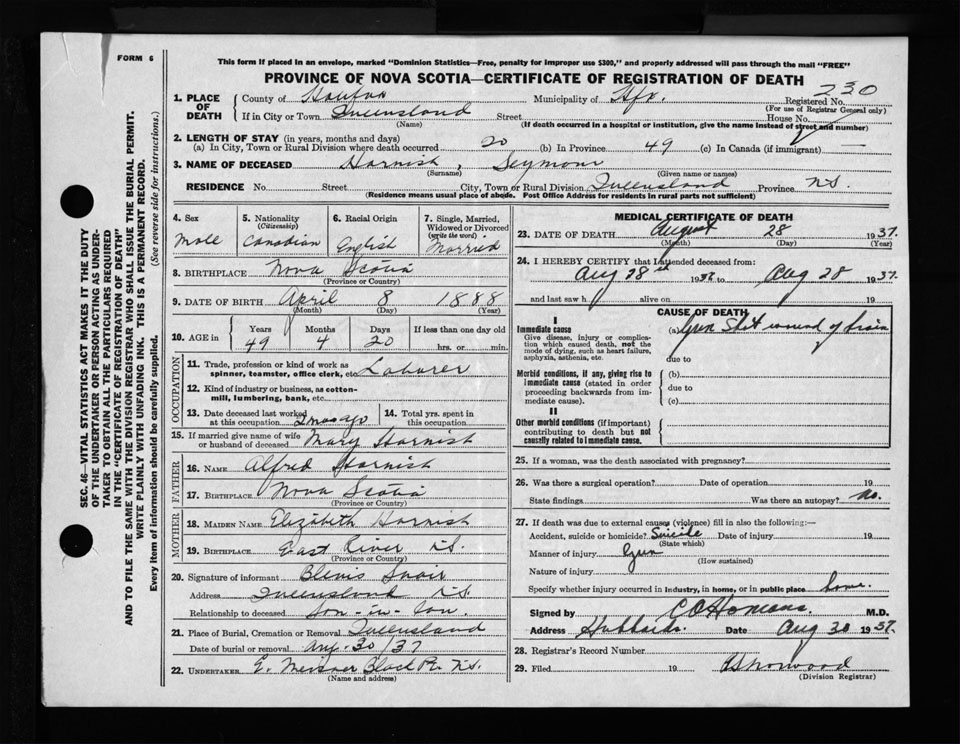 FORM 6
This form if placed in an envelope, marked "Dominion Statistics—Free, penalty for improper use $300," and properly addressed will pass through the mail "FREE"
PROVINCE OF NOVA SCOTIA—CERTIFICATE OF REGISTRATION OF DEATH
1. PLACE OF DEATH { County of Halifax Municipality of Hfx. Registered No. 230
(For use of Registrar General only)
If in City or Town Queensland Street House No.
(Name) (If death occurred in a hospital or institution, give the name instead of street and number)
2. LENGTH OF STAY (in years, months and days)
(a) In City, Town or Rural Division where death occurred 20 (b) In Province 49 (c) In Canada (if immigrant) —
3. NAME OF DECEASED Harnish, Seymour
(Surname) (Given name or names)
RESIDENCE No. Street City, Town or Rural Division Queensland Province N.S.
(Residence means usual place of abode. Post Office Address for residents in rural parts not sufficient)
4. Sex Male
5. Nationality (Citizenship) Canadian
6. Racial Origin English
7. Single, Married, Widowed or Divorced (write the word) Married
8. BIRTHPLACE Nova Scotia
(Province or Country)
9. DATE OF BIRTH April 8 1888
(Month) (Day) (Year)
10. AGE in { Years 49 Months 4 Days 20 If less than one day old hrs. or min.
OCCUPATION
11. Trade, profession or kind of work as spinner, teamster, office clerk, etc. Laborer
12. Kind of industry or business, as cotton-mill, lumbering, bank, etc.
13. Date deceased last worked at this occupation 2 mos ago
14. Total yrs. spent in this occupation
15. If married give name of wife or husband of deceased Mary Harnish
FATHER
16. NAME Alfred Harnish
17. BIRTHPLACE Nova Scotia
(Province or Country)
MOTHER
18. MAIDEN NAME Elizabeth Harnish
19. BIRTHPLACE East River N.S.
(Province or Country)
20. Signature of informant
Address Queensland N.S.
Relationship to deceased Son-in-law.
21. Place of Burial, Cremation or Removal Queensland
Date of burial or removal Aug. 30/37
22. UNDERTAKER E. Meisner Black Pt. N.S.
(Name and address)
MEDICAL CERTIFICATE OF DEATH
23. DATE OF DEATH August 28 1937.
(Month) (Day) (Year)
24. I HEREBY CERTIFY that I attended deceased from:
Aug 28th 1937 to Aug 28 1937.
and last saw h alive on 19
CAUSE OF DEATH
I
Immediate cause
Give disease, injury or complication which caused death, not the mode of dying, such as heart failure, asphyxia, asthenia, etc.
(a) Gun Shot wound of brain
due to
Morbid conditions, if any, giving rise to immediate cause (stated in order proceeding backwards from immediate cause).
(b)
due to
(c)
II
Other morbid conditions (if important) contributing to death but not causally related to immediate cause.
25. If a woman, was the death associated with pregnancy?
26. Was there a surgical operation? Date of operation 19
State findings Was there an autopsy? no.
27. If death was due to external causes (violence) fill in also the following:—
Accident, suicide or homicide? Suicide Date of injury 19
(State which)
Manner of injury Gun
(How sustained)
Nature of injury
Specify whether injury occurred in industry, in home, or in public place home.
Signed by M.D.
Address Hubbards. Date Aug 30 1937.
28. Registrar's Record Number
29. Filed 19
(Division Registrar)
SEC. 46—VITAL STATISTICS ACT MAKES IT THE DUTY
OF THE UNDERTAKER OR PERSON ACTING AS UNDER-
TAKER TO OBTAIN ALL THE PARTICULARS REQUIRED
IN THE "CERTIFICATE OF REGISTRATION OF DEATH"
AND TO FILE THE SAME WITH THE DIVISION REGISTRAR WHO SHALL ISSUE THE BURIAL PERMIT.
WRITE PLAINLY WITH UNFADING INK. THIS IS A PERMANENT RECORD.
Every item of information should be carefully supplied. (See reverse side for instructions.)